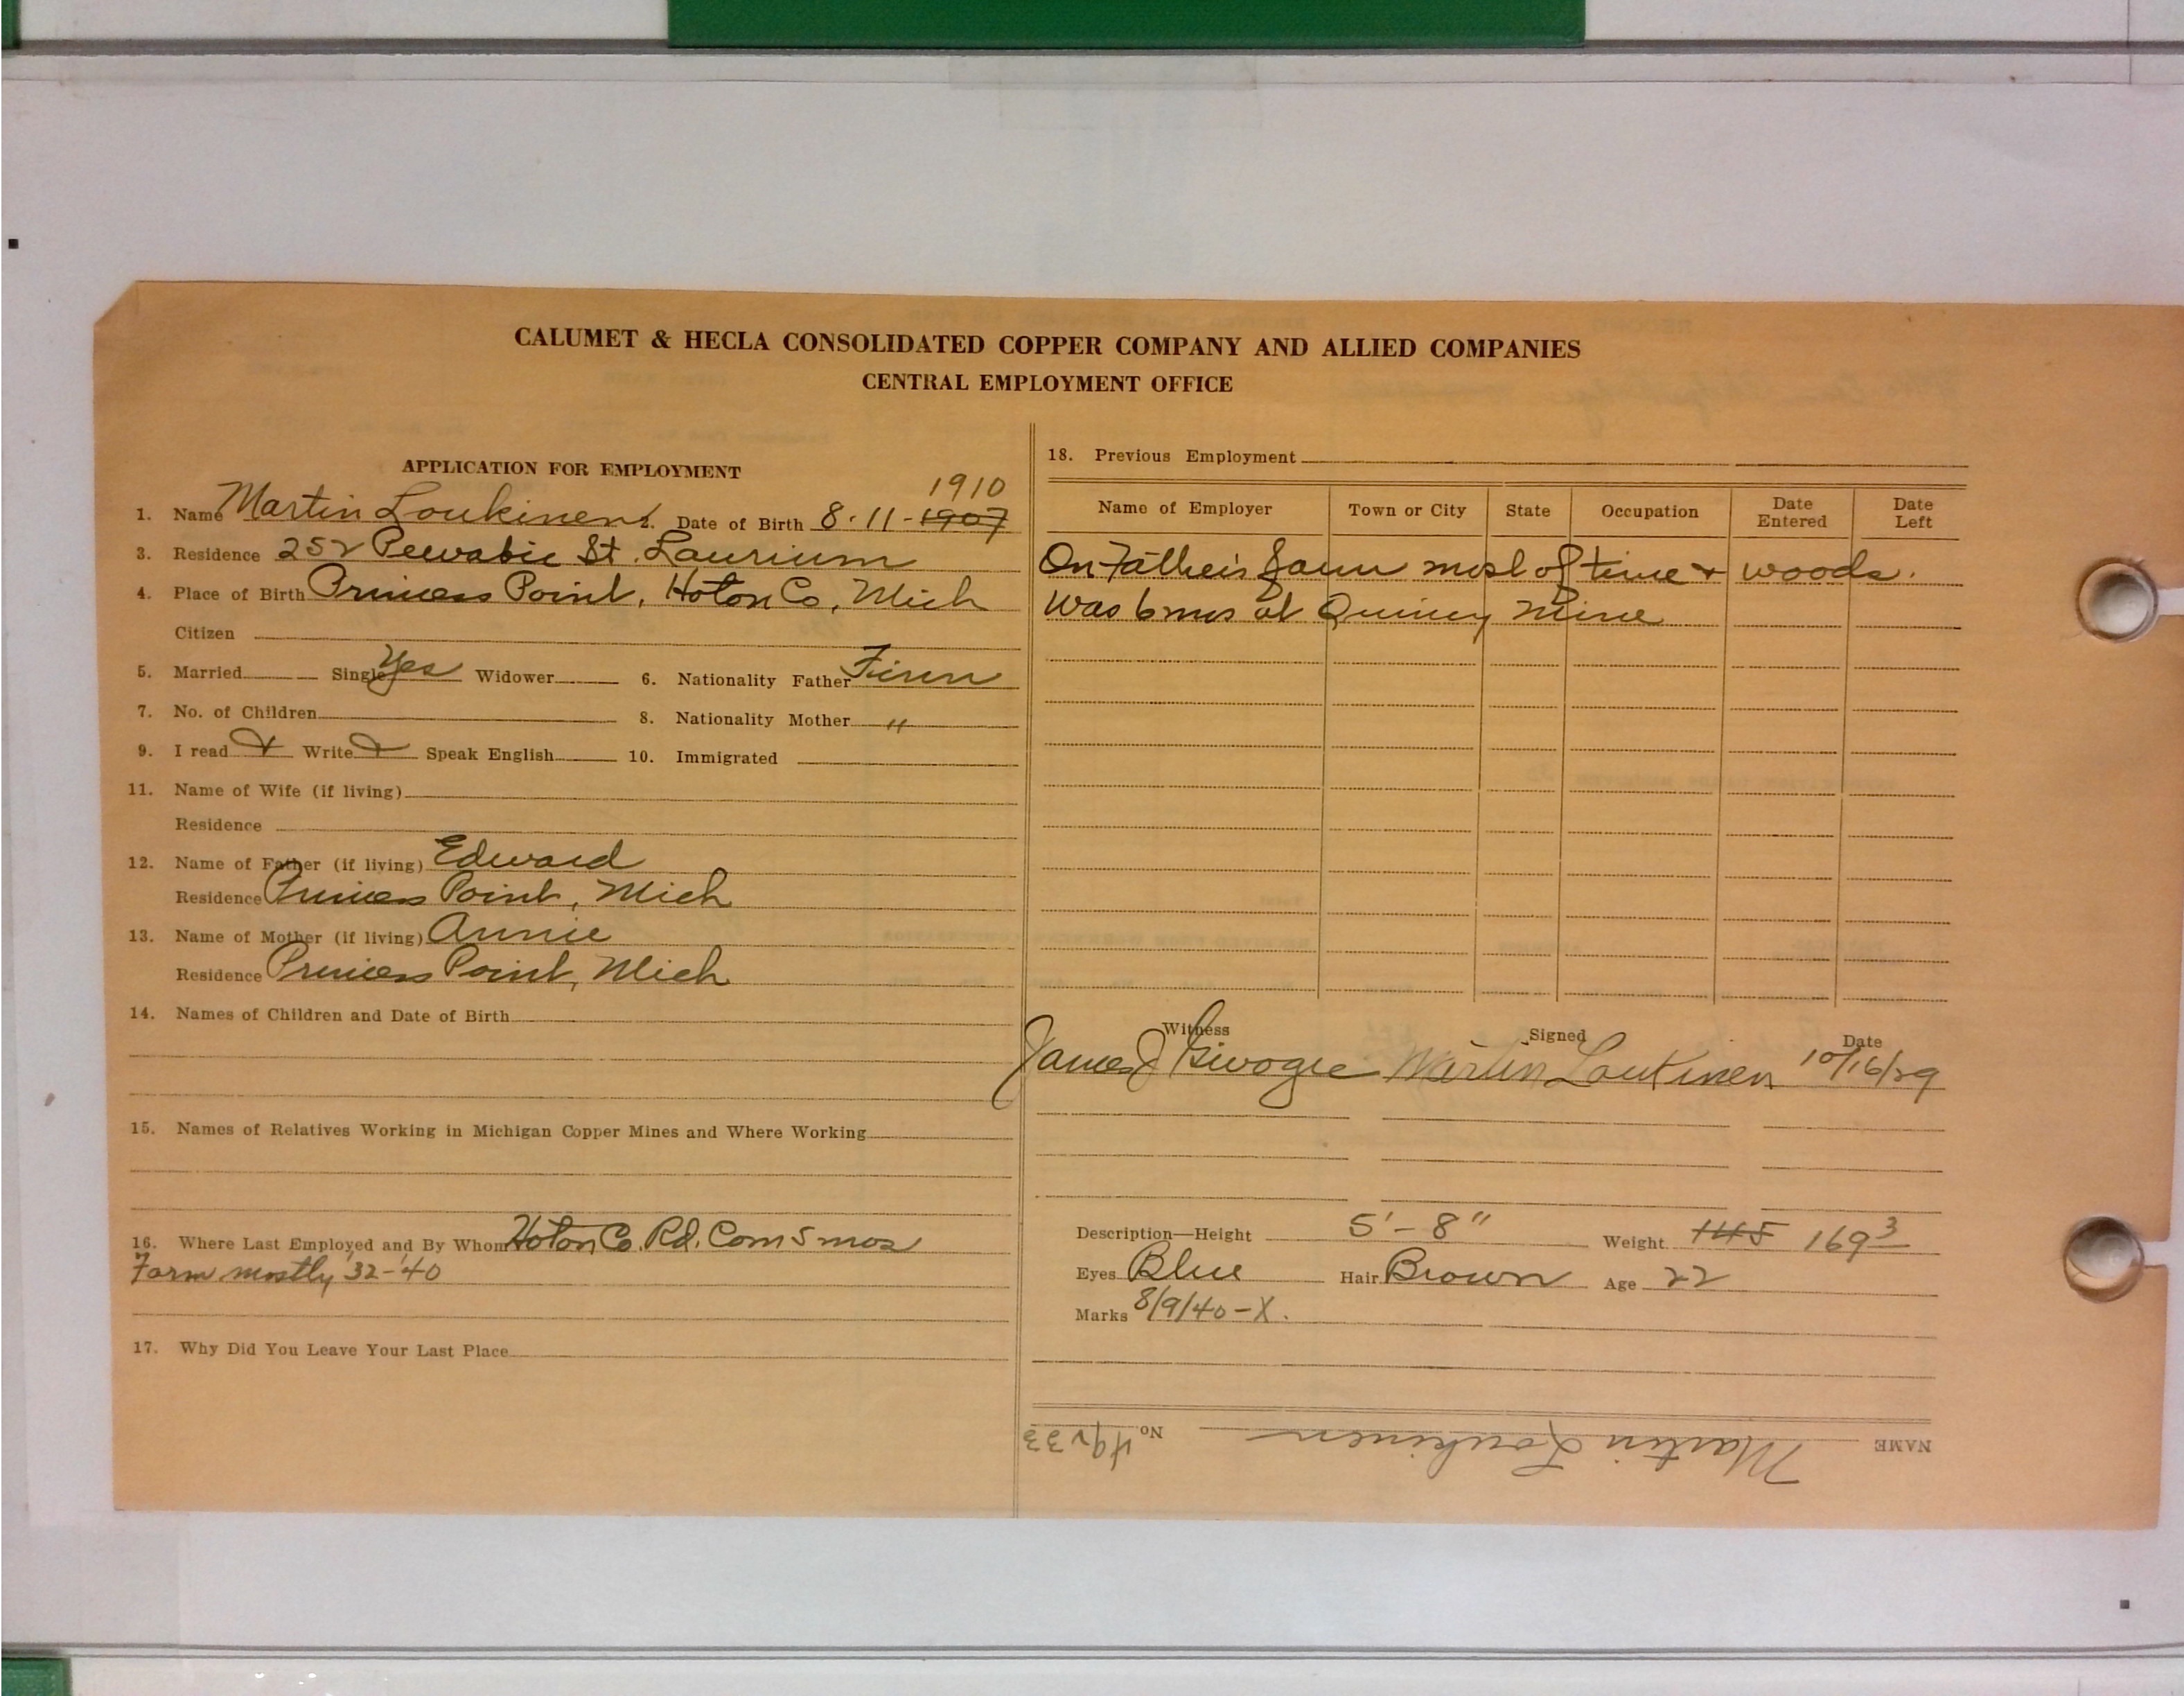 CALUMET & HECLA CONSOLIDATED COPPER COMPANY AND ALLIED COMPANIES
CENTRAL EMPLOYMENT OFFICE
APPLICATION FOR EMPLOYMENT
1910
1. Name Martin Loukinen 2. Date of Birth 8-11-1907
3. Residence 252 Pewabic St. Laurium
4. Place of Birth Princess Point, Hoton Co, Mich
Citizen
5. Married Single Yes Widower 6. Nationality Father Finn
7. No. of Children 8. Nationality Mother "
9. I read Write Speak English 10. Immigrated
11. Name of Wife (if living)
Residence
12. Name of Father (if living) Edward
Residence Princess Point, Mich
13. Name of Mother (if living) Annie
Residence Princess Point, Mich
14. Names of Children and Date of Birth
15. Names of Relatives Working in Michigan Copper Mines and Where Working
16. Where Last Employed and By Whom Hoton Co. Rd. Com 5 mos
Farm mostly '32-'40
17. Why Did You Leave Your Last Place
18. Previous Employment
Name of Employer Town or City State Occupation Date Entered Date Left
On Father's farm most of time & woods.
Was 6 mos at Quincy Mine
Witness Signed Date
James J Martin Loukinen 10/16/29
Description—Height 5'-8" Weight 145 169 3
Eyes Blue Hair Brown Age 22
Marks 8/9/40-X.
NAME Martin Loukinen No. 49233